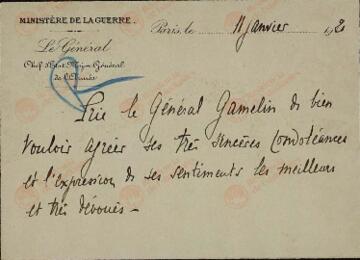 MINISTÈRE DE LA GUERRE.
Paris, le 11 janvier 192
Le Général
Chef d'État-Major Général
de l'Armée
Prie le Général Gamelin de bien
vouloir agréer ses très sincères condoléances
et l'expression de ses sentiments les meilleurs
et très dévoués -